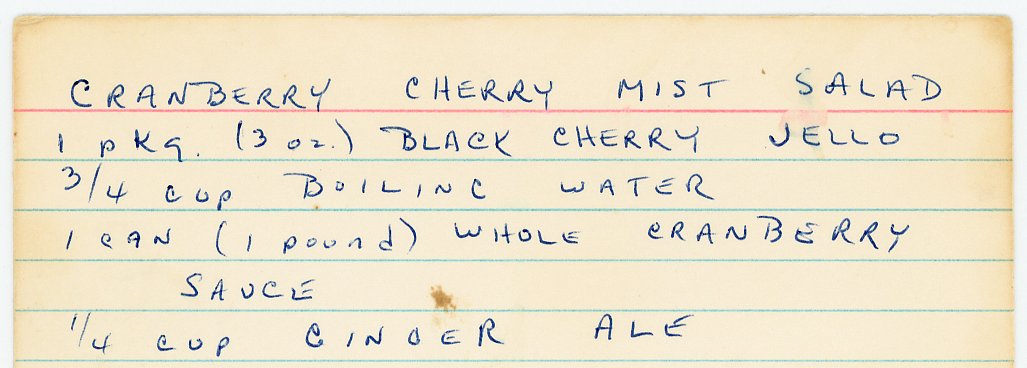 CRANBERRY CHERRY MIST SALAD
1 pkg. (3 oz.) BLACK CHERRY JELLO
3/4 cup BOILING WATER
1 can (1 pound) WHOLE CRANBERRY
SAUCE
1/4 cup GINGER ALE